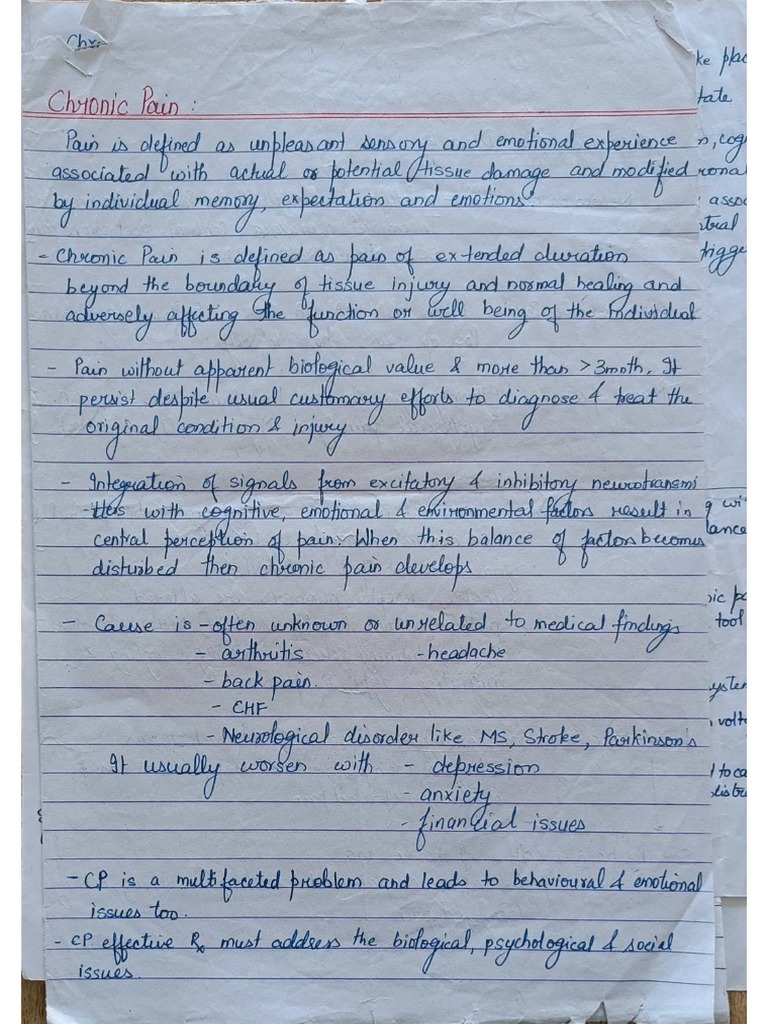 Chr
Chronic Pain :
Pain is defined as unpleasant sensory and emotional experience
associated with actual or potential tissue damage and modified
by individual memory, expectation and emotions.
- Chronic Pain is defined as pain of extended duration
beyond the boundary of tissue injury and normal healing and
adversely affecting the function or well being of the individual
- Pain without apparent biological value & more than >3moth. It
persist despite usual customary efforts to diagnose & treat the
original condition & injury
- Integration of signals from excitatory & inhibitory neurotransmi
-tters with cognitive, emotional & environmental factors result in
central perception of pain. When this balance of factors becomes
disturbed then chronic pain develops
- Cause is - often unknown or unrelated to medical findings
- arthritis - headache
- back pain.
- CHF
- Neurological disorder like MS, Stroke, Parkinson's
It usually worsen with - depression
- anxiety
- financial issues
- CP is a multifaceted problem and leads to behavioural & emotional
issues too.
- CP effective Rx must address the biological, psychological & social
issues.
ke plac
tate
n, cog
ronal
asso
ntral
trigge
g wi
lance
ic pa
tool
yste
volt
to ca
distr